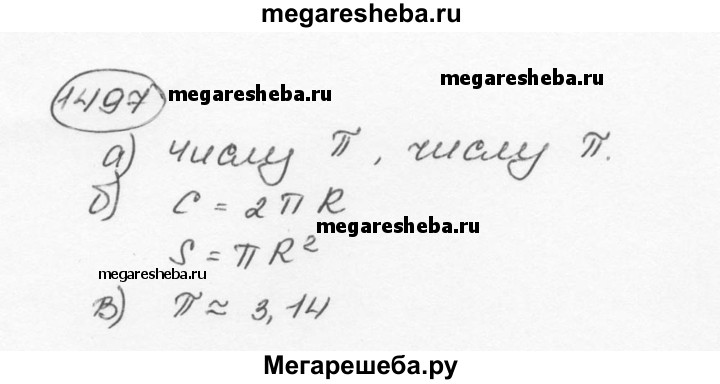 megaresheba.ru
1497 megaresheba.ru megaresheba.ru
а) числу π, числу π.
б) C = 2πR
megaresheba.ru
S = πR²
megaresheba.ru
в) π ≈ 3,14
Мегарешеба.ру